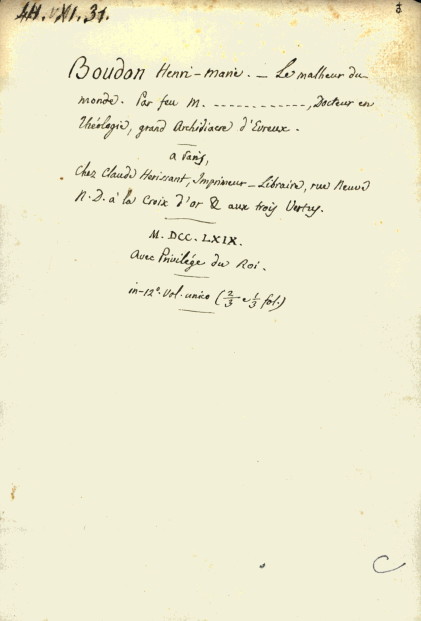 HH.XI.31.
Boudon Henri-Marie. – Le malheur du
monde. Par feu M. ------------, Docteur en
théologie, grand Archidiacre d'Evreux.
a Paris,
Chez Claude Herissant, Imprimeur-Libraire, rue Neuve
N.D. à la Croix d'or & aux trois Vertus.
M.DCC.LXIX.
Avec Privilége du Roi.
in-12º. Vol. unico (2/3 e 1/3 fol.)
C